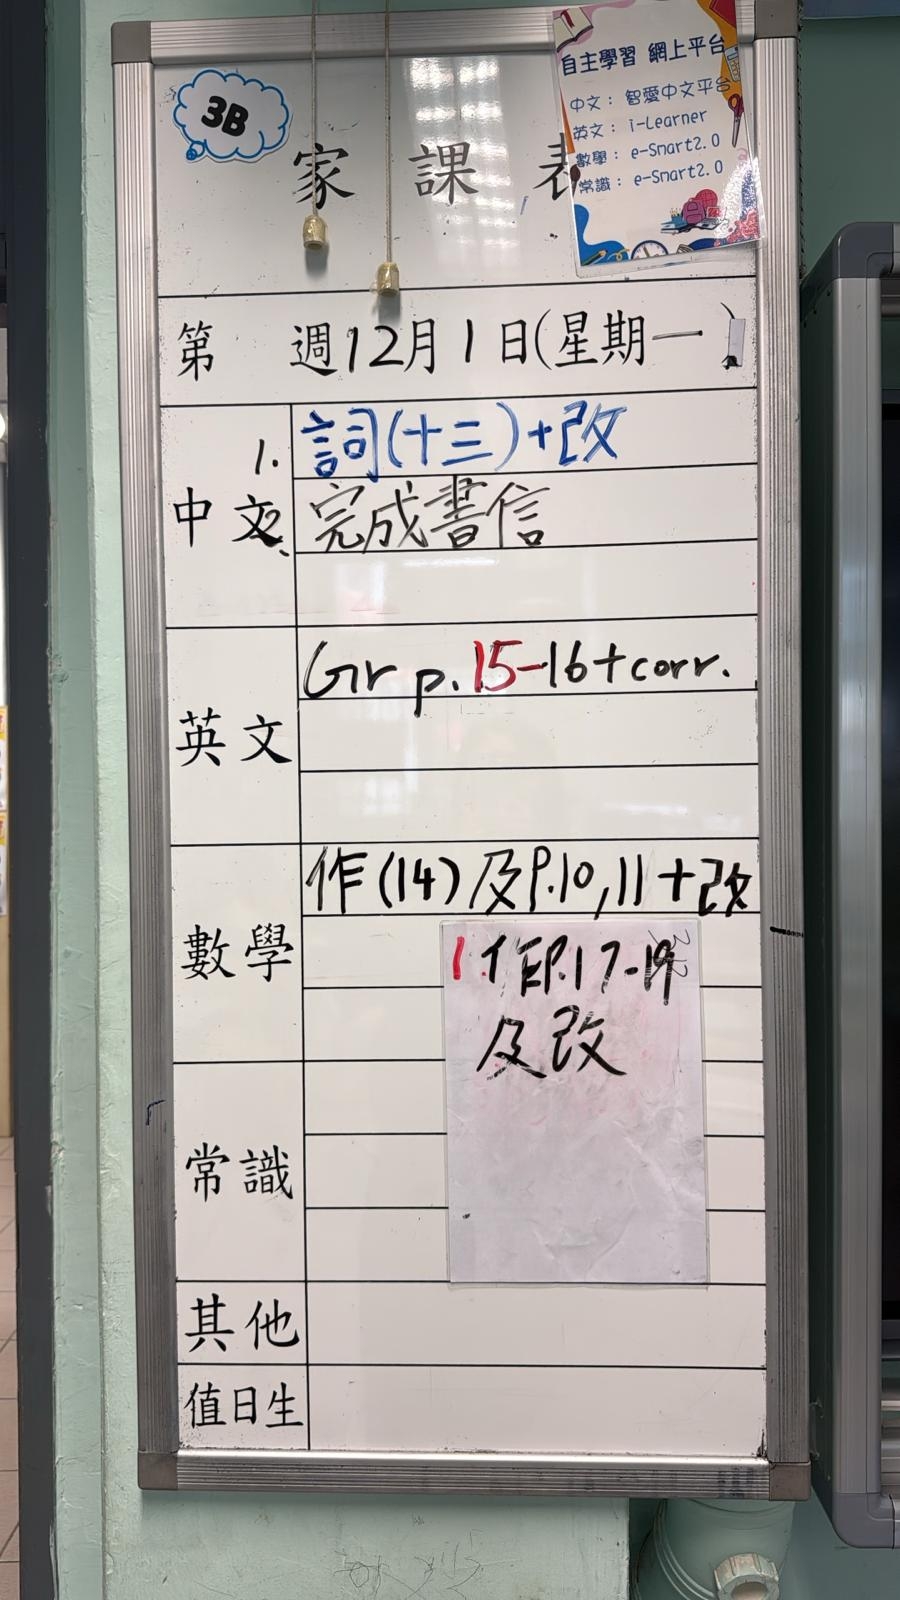 3B
家課表
自主學習 網上平台
中文： 智愛中文平台
英文： i-Learner
數學： e-Smart2.0
常識： e-Smart2.0
第 週12月1日(星期一)
中文
1. 詞(十三)+改
2. 完成書信
英文
Gr p.15-16+corr.
數學
作(14)及P.10,11+改
1.作P.17-19
及改
常識
其他
值日生